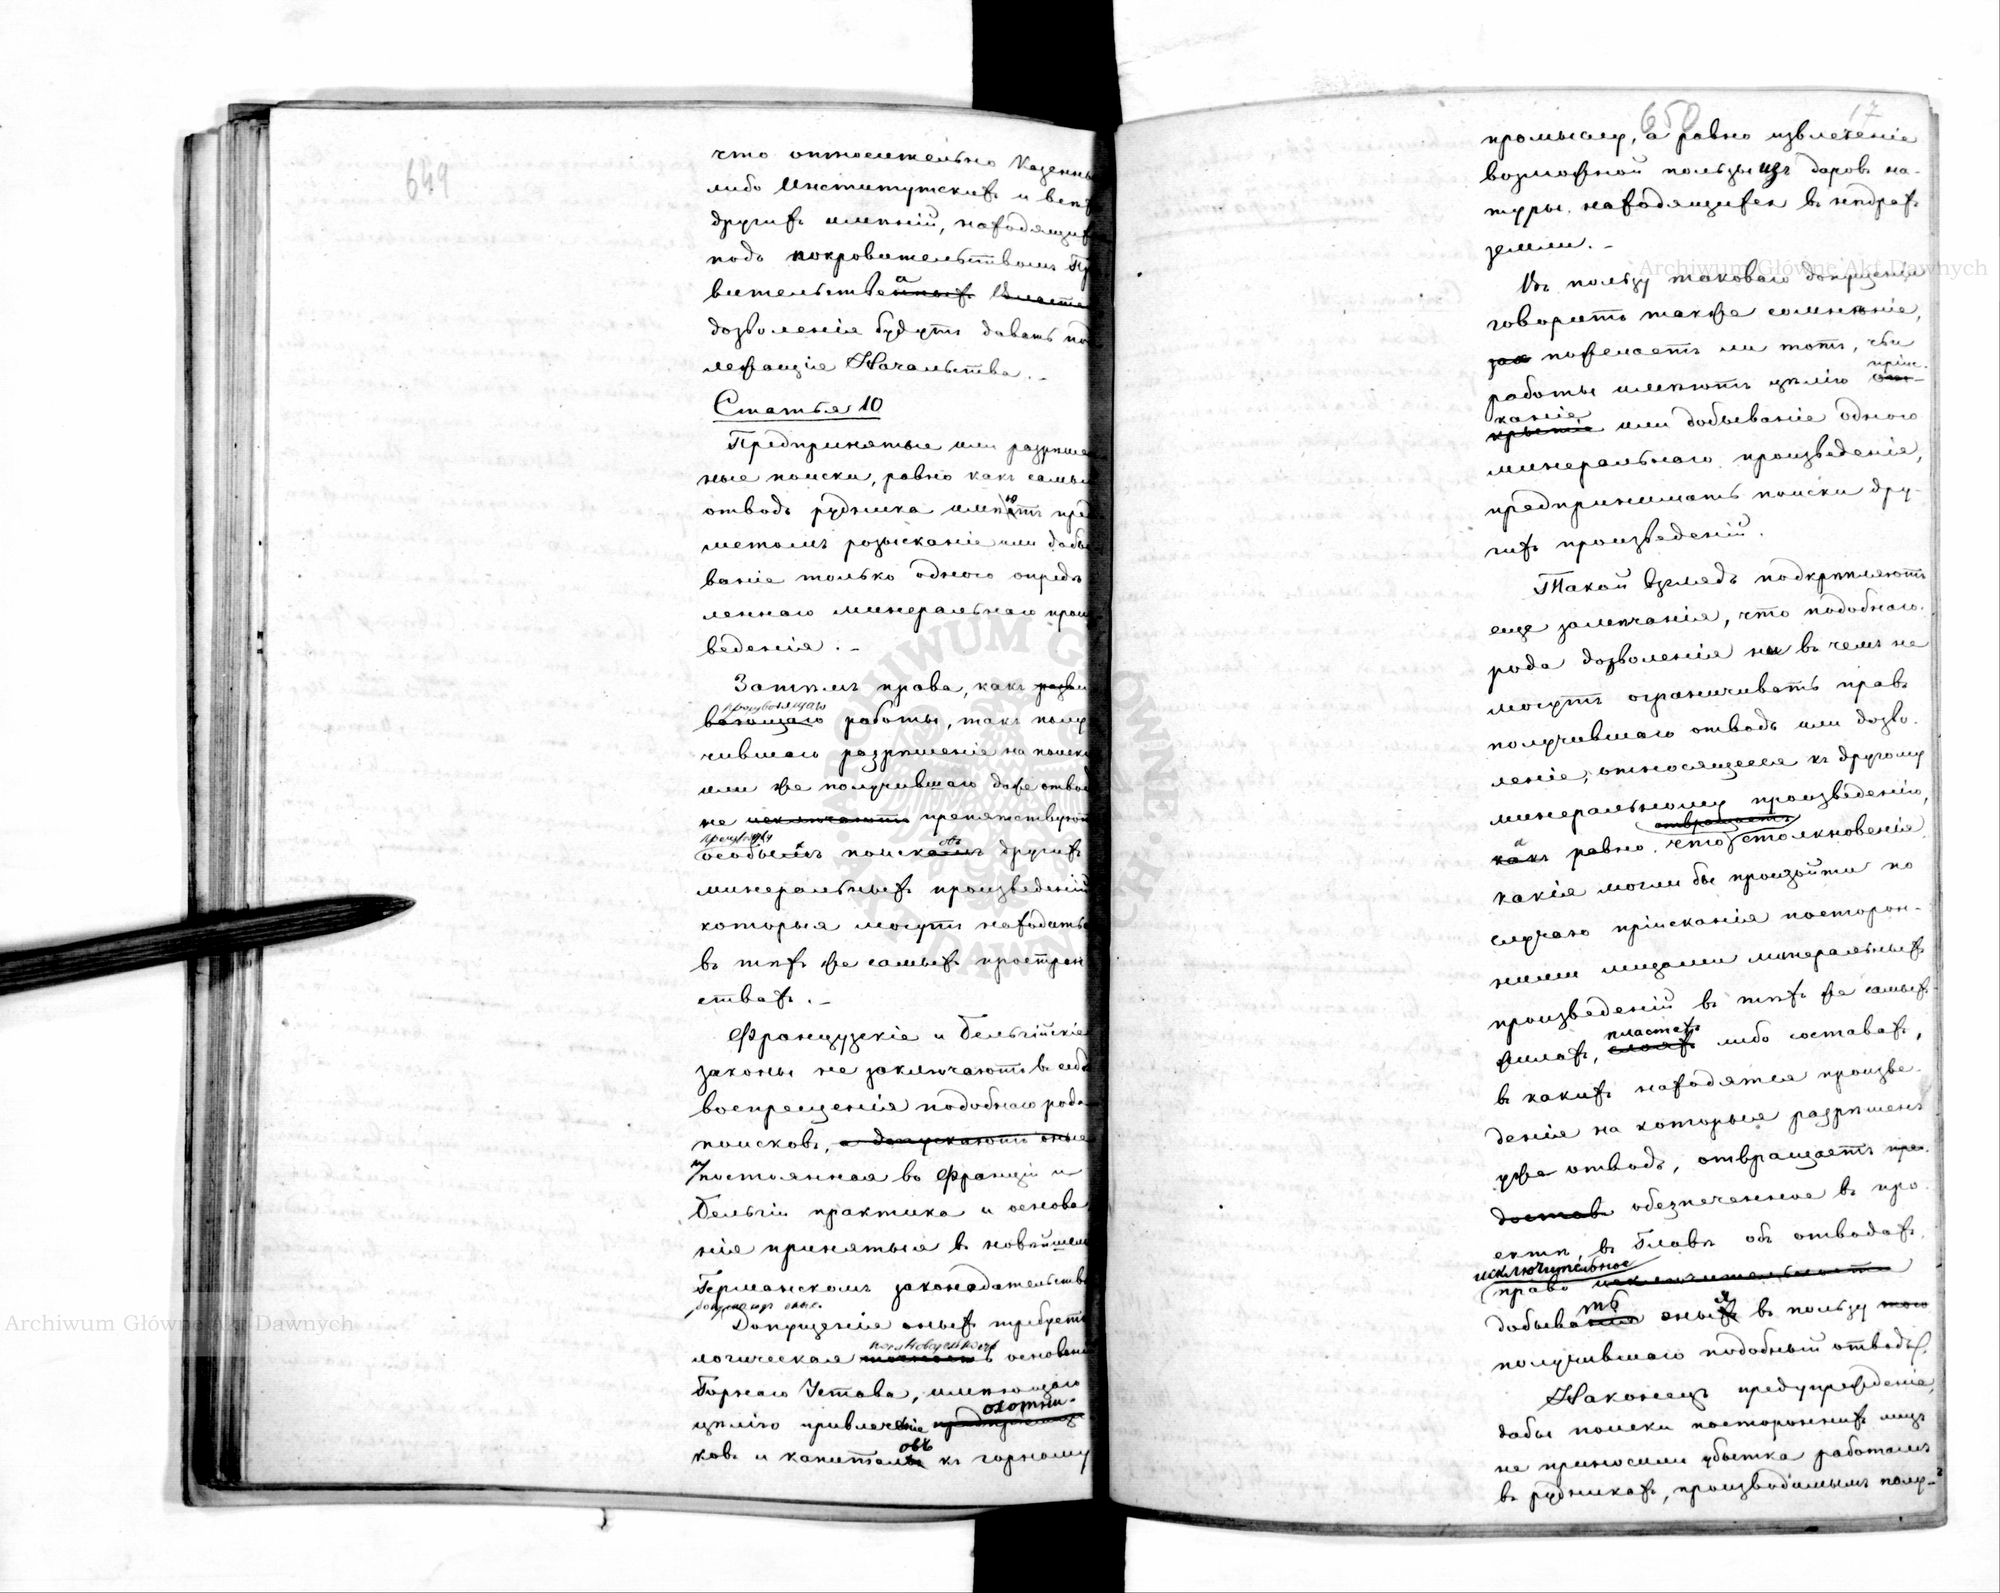 649
что относительно Казенны
либо Институтскихъ и всѣ
другихъ имѣній, находящих
подъ покровительствомъ Пр
вительства
дозволенія будутъ давать по
лежащіе Начальства. -
Статья 10
Предпринятые или разрѣше
ные поиски, равно какъ самы
отводъ рудника имѣютъ пред
метомъ розысканіе или добы
ваніе только одного опредѣ
леннаго минеральнаго прои
веденія. -
Затѣмъ права, какъ разви
производящаго
вающаго работы, такъ полу
чившаго разрѣшеніе на поиск
или же получившаго даже отвод
не исключаютъ препятствуют
производству
особымъ поискамъ другихъ
минеральныхъ произведеній
которыя могутъ находить
въ тѣхъ же самыхъ простран
ствахъ. -
Французскіе и Бельгійскіе
законы не заключаютъ въ себ
воспрещенія подобнаго рода
поисковъ, а допускаютъ оные
и постоянная во Франціи и
Бельгіи практика и основа
нія принятыя въ новѣйшем
Германскомъ законодательств
допускаютъ оные.
Допущенія оныхъ требуетъ
логическая основані
Горнаго Устава, имѣющаго
охотни-
цѣлію привлеченіе предпріимщи
овъ
ковъ и капиталы къ горному
650 17
промыслу, а равно извлеченіе
возможной пользы изъ даровъ на-
туры, находящихся въ нѣдрахъ
земли. -
Въ пользу таковаго допущенія
говоритъ также сомнѣніе,
пожелаетъ ли тотъ, чьи
пріис-
работы имѣютъ цѣлію от-
каніе
крытіе или добываніе одного
минеральнаго произведенія,
предпринимать поиски дру-
гихъ произведеній.
Такой взглядъ подкрѣпляютъ
еще замѣчанія, что подобнаго
рода дозволенія ни въ чемъ не
могутъ ограничивать правъ
получившаго отводъ или дозво-
леніе, относящееся къ другому
минеральному произведенію,
отвращаетъ
а
какъ равно что столкновенія
какія могли бы произойти по
случаю пріисканія посторон-
ними лицами минеральныхъ
произведеній въ тѣхъ же самыхъ
пластахъ
жилахъ, слояхъ либо составахъ,
въ какихъ находятся произве-
денія на которыя разрѣшенъ
уже отводъ, отвращаетъ пре-
доставъ обезпеченное въ про-
ектѣ, въ Главѣ объ отводахъ,
исключительное
право исключительности
ть я
добыванія оныхъ въ пользу того
получившаго подобный отводъ.
Наконецъ предупрежденіе,
дабы поиски постороннихъ лицъ
не приносили убытка работамъ
въ рудникахъ, производимымъ полу-
Archiwum Główne Akt Dawnych
Archiwum Główne Akt Dawnych
ARCHIWUM GŁÓWNE AKT DAWNYCH